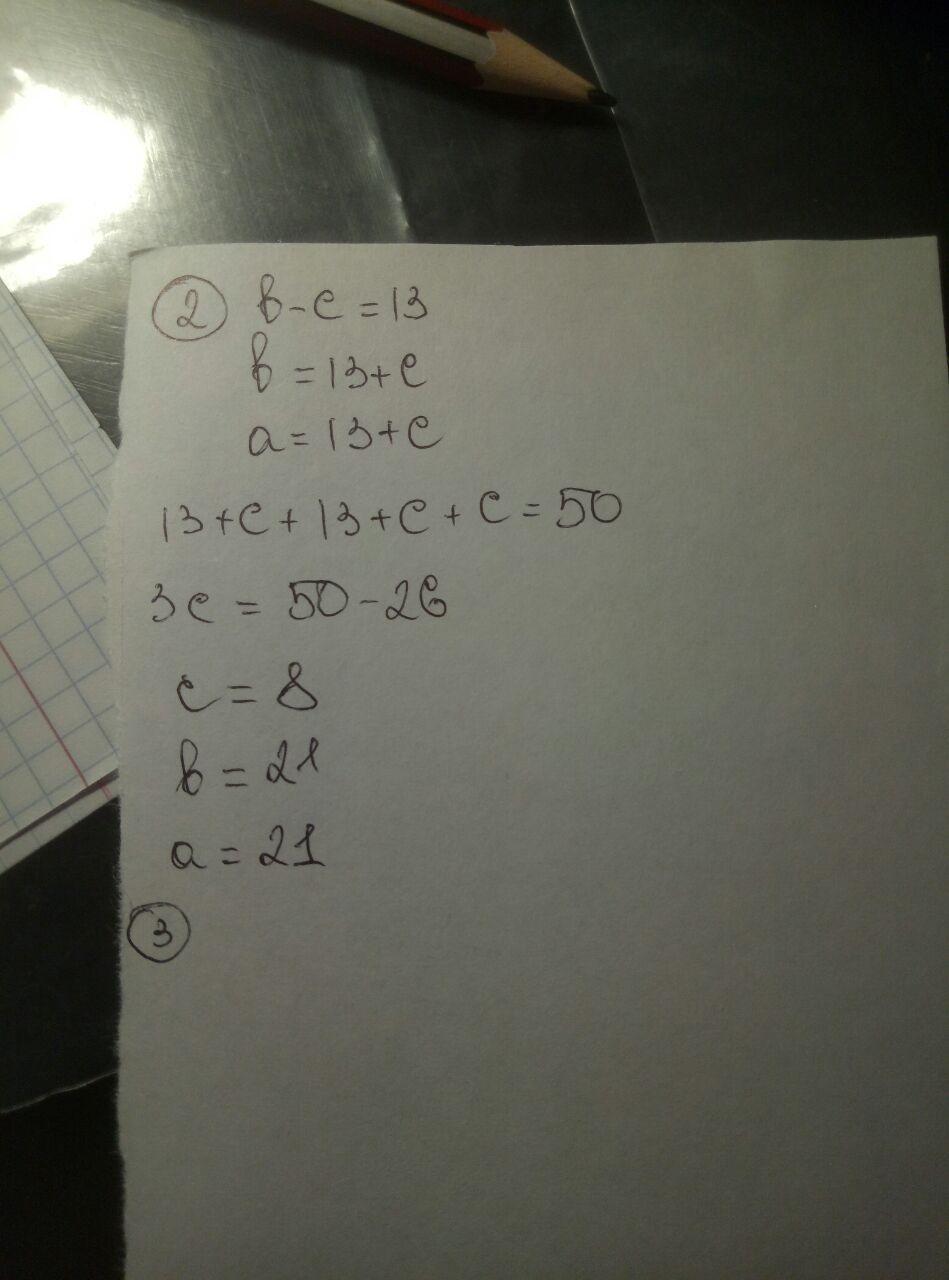 2 в-с=13
в=13+с
а=13+с
13+с+13+с+с=50
3с=50-26
с=8
в=21
а=21
3